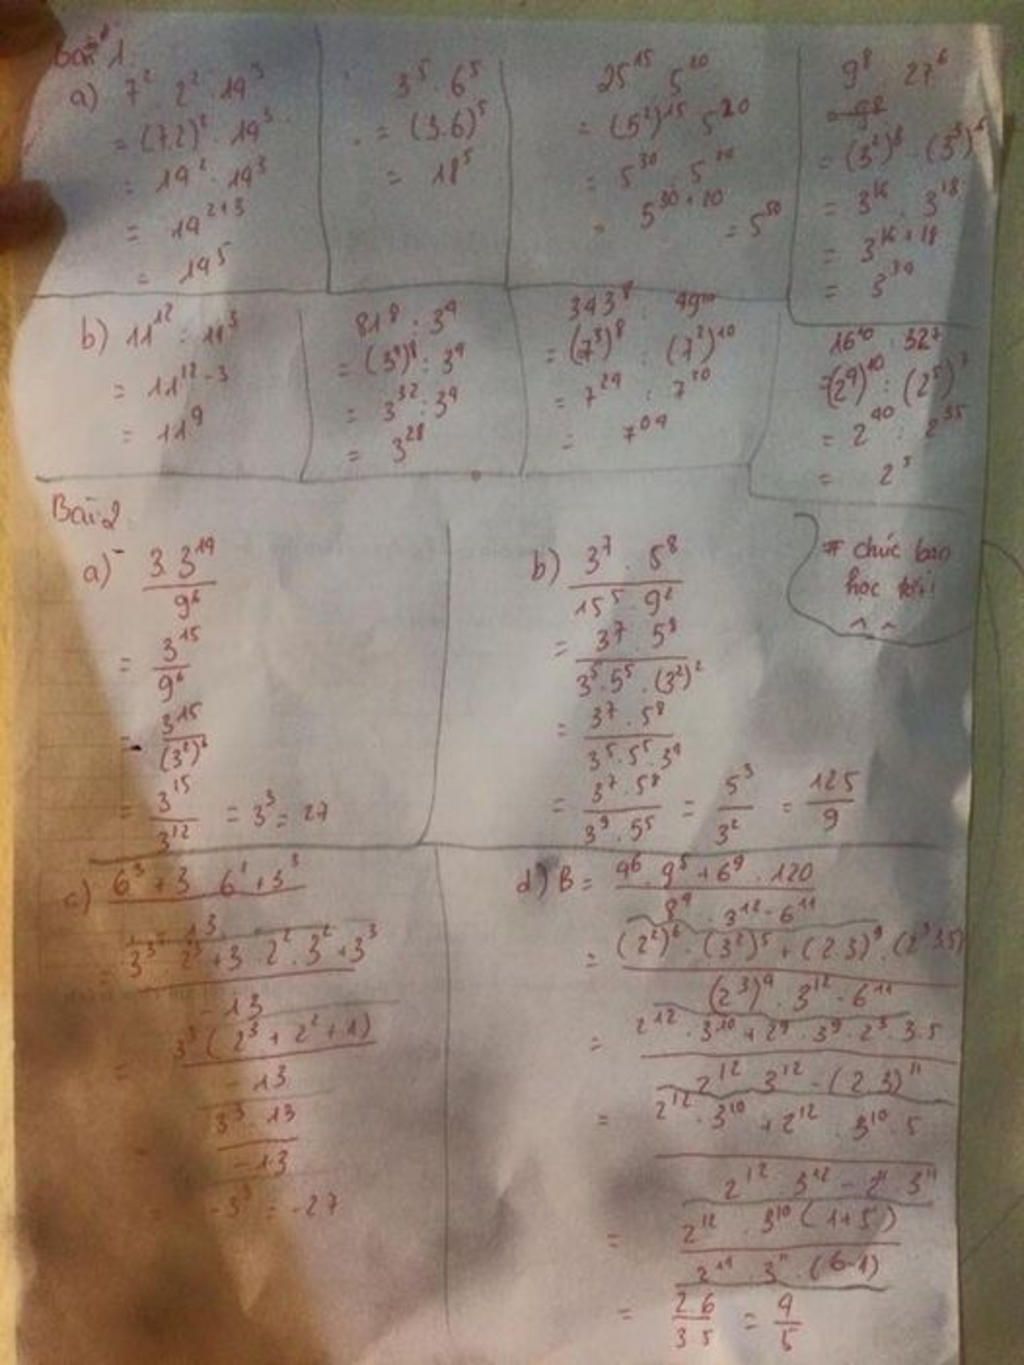 Bài 1.
a) 7² . 2² . 19³
= (7.2)² . 19³
= 19² . 19³
= 19²⁺³
= 19⁵
3⁵ . 6⁵
= (3.6)⁵
= 18⁵
25¹⁵ 5²⁰
= (5²)¹⁵ 5²⁰
= 5³⁰ . 5²⁰
= 5³⁰⁺²⁰ = 5⁵⁰
9⁸ . 27⁶
= (3²)⁸ . (3³)⁶
= 3¹⁶ . 3¹⁸
= 3¹⁶⁺¹⁸
= 3³⁴
b) 11¹² : 11³
= 11¹²⁻³
= 11⁹
81⁸ : 3⁴
= (3⁴)⁸ : 3⁴
= 3³² : 3⁴
= 3²⁸
343⁸ : 49¹⁰
= (7³)⁸ : (7²)¹⁰
= 7²⁴ : 7²⁰
= 7⁰⁴
16¹⁰ : 32⁷
= (2⁴)¹⁰ : (2⁵)⁷
= 2⁴⁰ : 2³⁵
= 2⁵
Bài 2
a) 3.3¹⁴
9⁶
= 3¹⁵
9⁶
= 3¹⁵
(3²)⁶
= 3¹⁵
3¹² = 3³ = 27
b) 3⁷ . 5⁸
15⁵ . 9²
= 3⁷ . 5⁸
3⁵.5⁵ . (3²)²
= 3⁷ . 5⁸
3⁵.5⁵.3⁴
= 3⁷.5⁸ = 5³ = 125
3⁹.5⁵ 3² 9
# chúc bạn
học tốt!
^ ^
c) 6³ + 3 . 6² + 3³
- 13
= 3³ . 2³ + 3 . 2² . 3² + 3³
- 13
= 3³ (2³ + 2² + 1)
- 13
3³ . 13
- 13
= -3³ = -27
d) B = 4⁶ . 9⁵ + 6⁹ . 120
8⁴ . 3¹² - 6¹¹
= (2²)⁶ . (3²)⁵ + (2.3)⁹ . (2³.3.5)
(2³)⁴ . 3¹² - 6¹¹
= 2¹² . 3¹⁰ + 2⁹ . 3⁹ . 2³ . 3.5
2¹² 3¹² - (2.3)¹¹
= 2¹² . 3¹⁰ + 2¹² . 3¹⁰ . 5
2¹² . 3¹² - 2¹¹ 3¹¹
= 2¹² . 3¹⁰ (1+5)
2¹¹ 3¹¹ . (6-1)
= 2.6 = 4
3.5 5